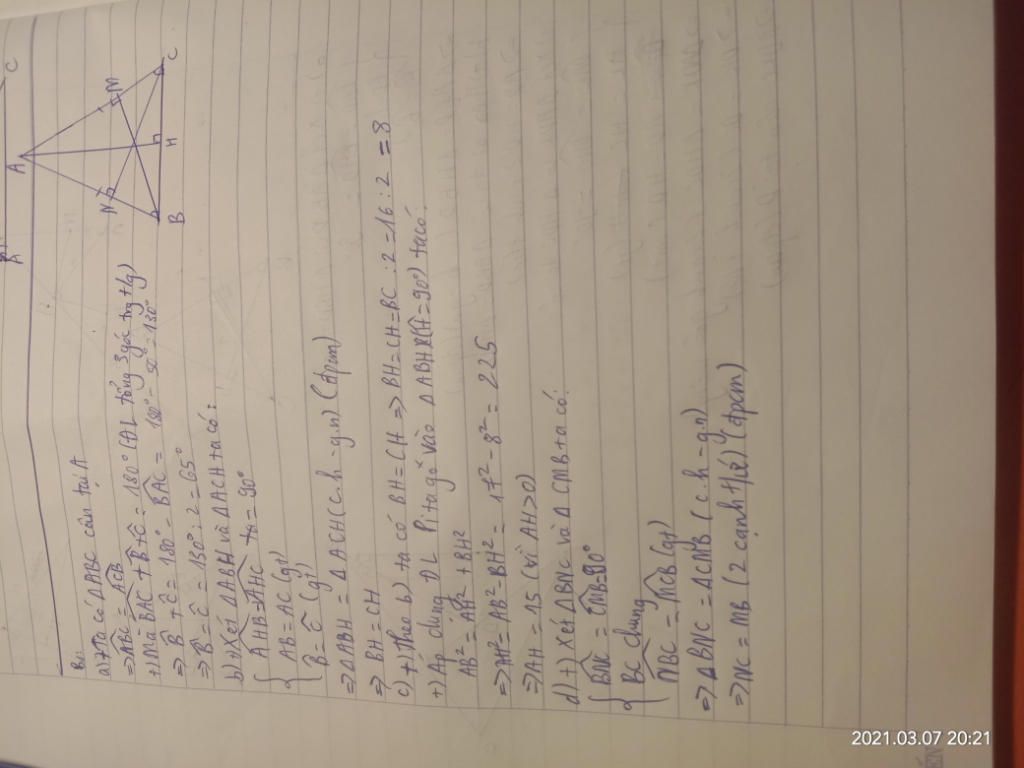 A
N
M
B
H
C
B
C
B2:
a) +) Ta có ΔABC cân tại A
=> ABC = ACB
+) mà BAC + B + C = 180° (ĐL tổng 3 góc trg t/g)
=> B + C = 180° - BAC = 180° - 50° = 130°
=> B = C = 130° : 2 = 65°
b) +) Xét ΔABH và ΔACH ta có:
AHB = AHC = 90°
AB = AC (gt)
B = C (gt)
=> ΔABH = ΔACH (c.h - g.n) (đpcm)
=> BH = CH
c) +) theo b) ta có BH = CH => BH = CH = BC : 2 = 16 : 2 = 8
+) Áp dụng ĐL Pitago vào ΔABH (H = 90°) ta có
AB² = AH² + BH²
=> AH² = AB² - BH² = 17² - 8² = 225
=> AH = 15 (vì AH > 0)
d) +) Xét ΔBNC và ΔCMB ta có:
BNC = CMB = 90°
BC chung
NBC = MCB (gt)
=> ΔBNC = ΔCMB (c.h - g.n)
=> NC = MB (2 cạnh t/ứ) (đpcm)
2021.03.07 20:21